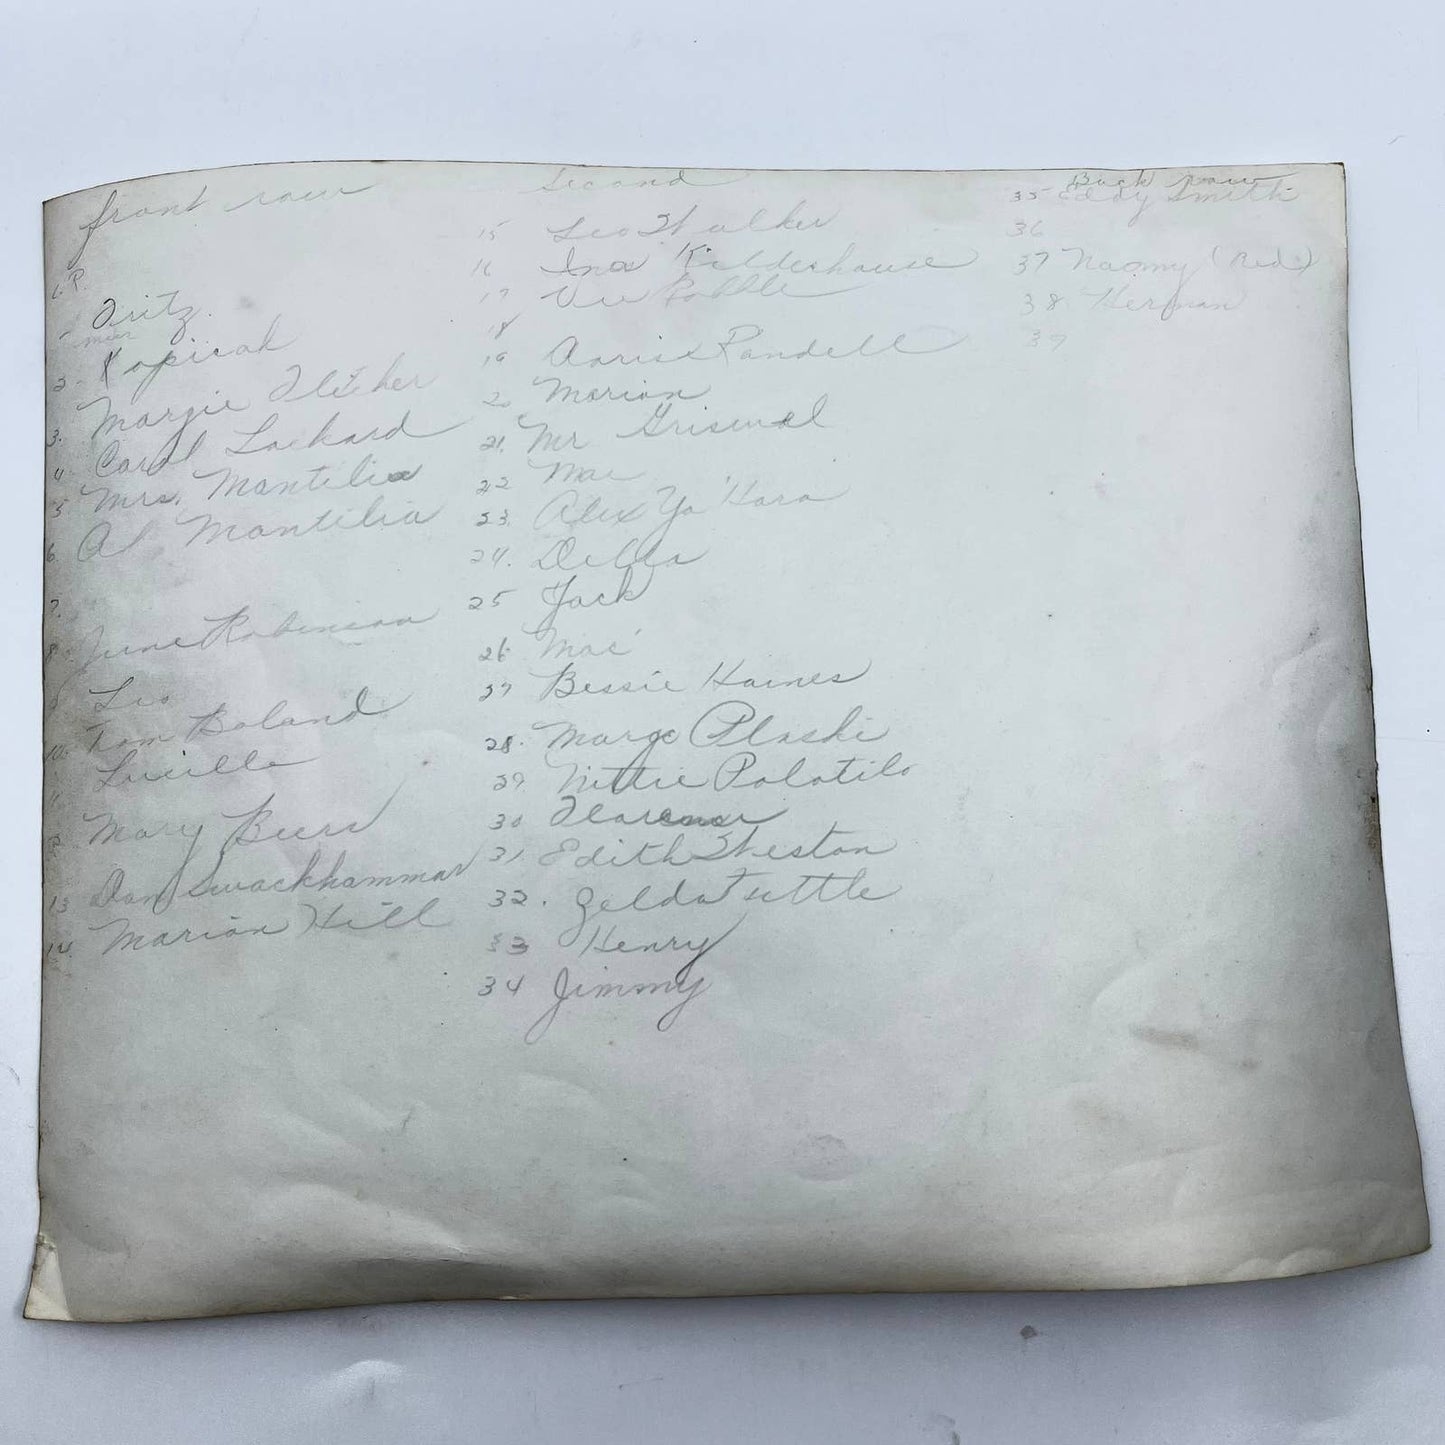 front row
L.R.
1- Fritz
2- Kopicak
3. Margie Fletcher
4 Carol Lockard
5 Mrs. Mantilia
6. Al Mantilia
7.
8. June Robinson
9 Leo
10. Tom Boland
11 Lucille
12 Mary Beers
13 Dan Swackhammar
14. Marion Hill
Second
15 Leo Walker
16 Ina Kilderhouse
17
18
19 Randell
20 Marion
21. Mr Griswald
22 Mae
23. Alex Ya'Hara
24. Della
25 Jack
26 Mae
27 Bessie Haines
28. Marge Plaski
29 Nittie Polatilo
30
31 Edith Weston
32. Zelda Tuttle
33 Henry
34 Jimmy
Back row
35 Eddy Smith
36
37 Naomy (Red)
38 Herman
39